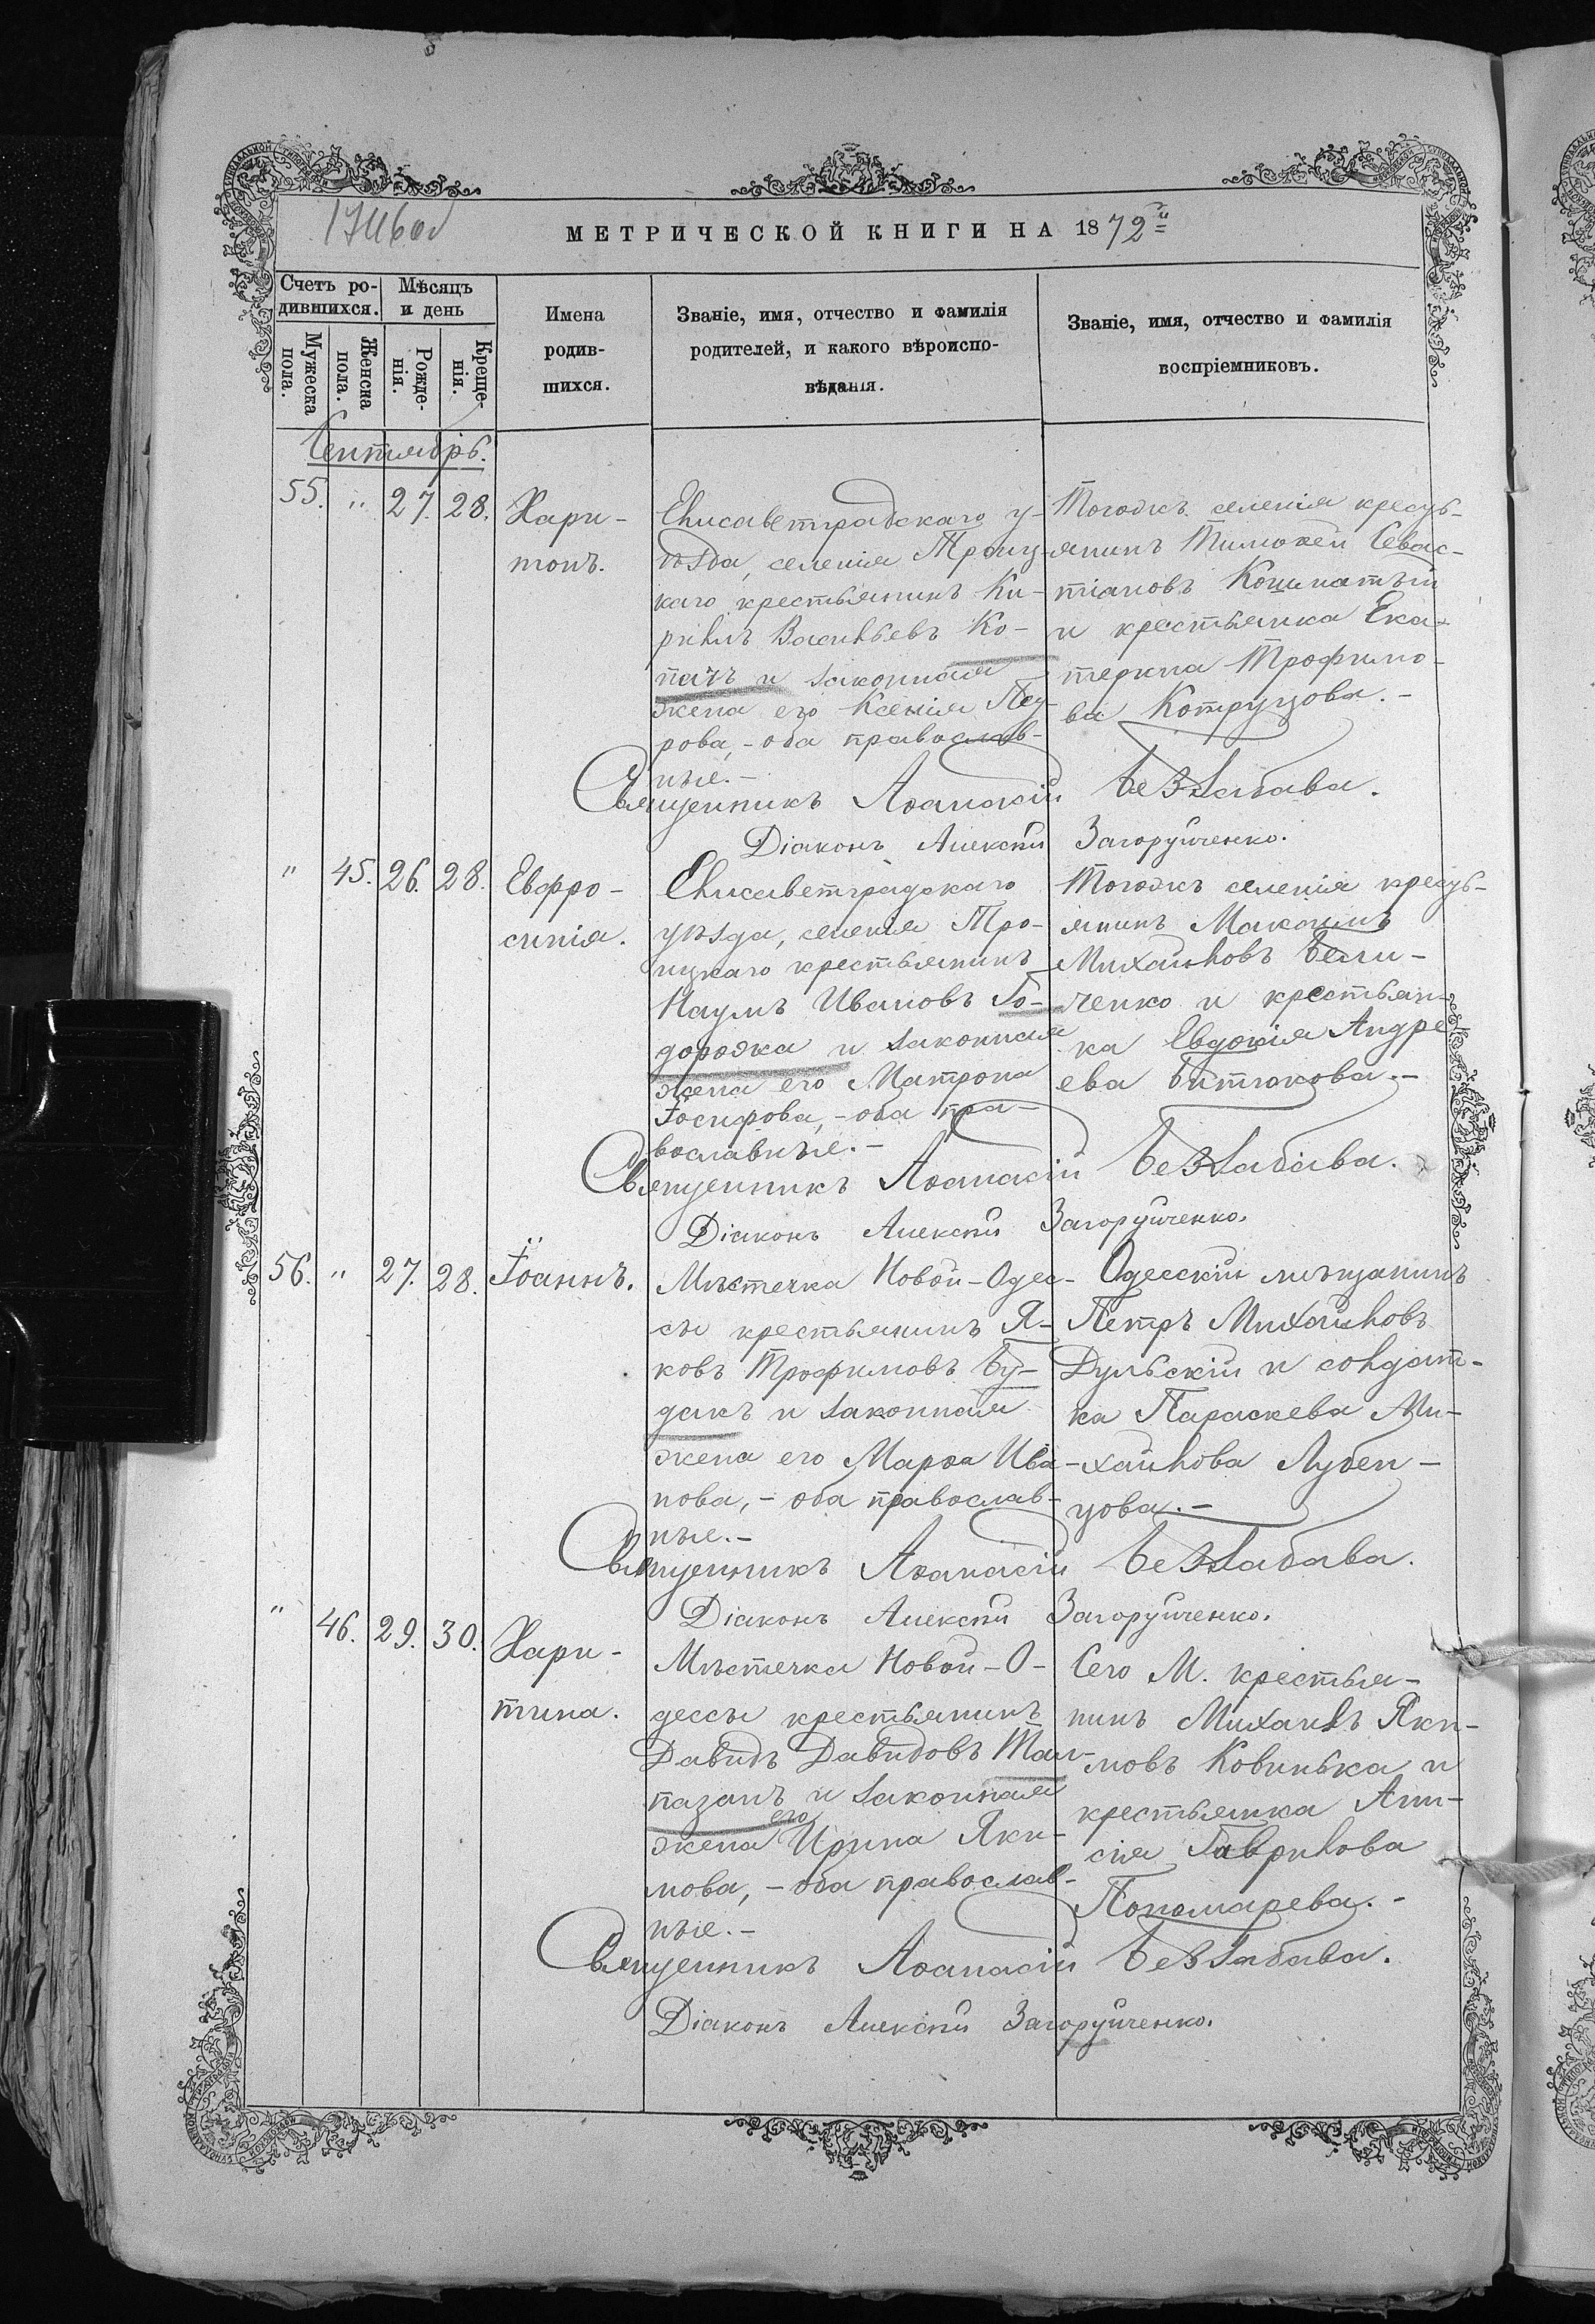 МЕТРИЧЕСКОЙ КНИГИ НА 1872й
Счетъ ро-
дившихся.
Мѣсяцъ
и день
Мужеска
пола.
Женска
пола.
Рожде-
нія.
Креще-
нія.
Имена
родив-
шихся.
Званіе, имя, отчество и фамилія
родителей, и какого вѣроиспо-
вѣданія.
Званіе, имя, отчество и фамилія
воспріемниковъ.
Сентябрь.
55. " 27. 28.
Хари-
тонъ.
Елисаветградскаго у-
ѣзда, селенія Троиц-
каго крестьянинъ Ки-
рилъ Васильевъ Ко-
пачъ и законная
жена его Ксенія Пет-
рова, - оба православ-
ные. -
Тогожъ селенія кресть-
янинъ Тимоѳей Севас-
тіановъ
и крестьянка Ека-
терина Трофимо-
ва Котруцова. -
Священникъ Аѳанасій Беззабава.
Діаконъ Алексѣй Загоруйченко.
" 45. 26. 28.
Евфро-
синія.
Елисаветградскаго
уѣзда, селенія Тро-
ицкаго крестьянинъ
Наумъ Ивановъ Го-
дорожа и законная
жена его Матрона
Іосифова, - оба пра-
вославные. -
Тогожъ селенія кресть-
янинъ Максимъ
Михайловъ Вели-
ченко и крестьян-
ка Евдокія Андре-
ева Битюкова. -
Священникъ Аѳанасій Беззабава.
Діаконъ Алексѣй Загоруйченко.
56. " 27. 28.
Іоаннъ.
Мѣстечка Новой-Одес-
сы крестьянинъ Я-
ковъ Трофимовъ Бу-
дакъ и законная
жена его Марѳа Ива-
нова, - оба православ-
ные. -
Одесскій мѣщанинъ
Петръ Михайловъ
Дульскій и солдат-
ка Параскева Ми-
хайлова Лубен-
цова. -
Священникъ Аѳанасій Беззабава.
Діаконъ Алексѣй Загоруйченко.
" 46. 29. 30.
Хари-
тина.
Мѣстечка Новой-О-
дессы крестьянинъ
Давидъ Давидовъ Там-
пазанъ и законная
жена его Ирина Яки-
мова, - оба православ-
ные. -
Сего М. крестья-
нинъ Михаилъ Яки-
мовъ Ковинька и
крестьянка Ани-
сія Гаврилова
Пономарева. -
Священникъ Аѳанасій Беззабава.
Діаконъ Алексѣй Загоруйченко.